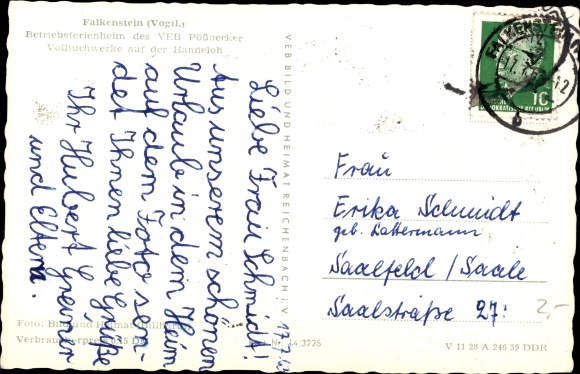 Falkenstein (Vogtl.)
Betriebsferienheim des VEB Pößnecker
Volltuchwerke auf der Hanneloh
Liebe Frau Schmidt!
Aus unserem schönen
Urlaub in dem Heim
auf dem Foto sen-
det Ihnen liebe Grüße
Ihr Hubert Greiner
und Eltern.
17.7.63
VEB BILD UND HEIMAT REICHENBACH I. V.
FALKENSTEIN
10
DEUTSCHE
DEMOKRATISCHE REPUBLIK
b
Frau
Erika Schmidt
geb. Lattermann
Saalfeld / Saale
Saalstraße 27:
2,-
Foto: Bild und Heimat
Verbraucherpreis
Nr. 44/3725
V 11 28 A 246 59 DDR